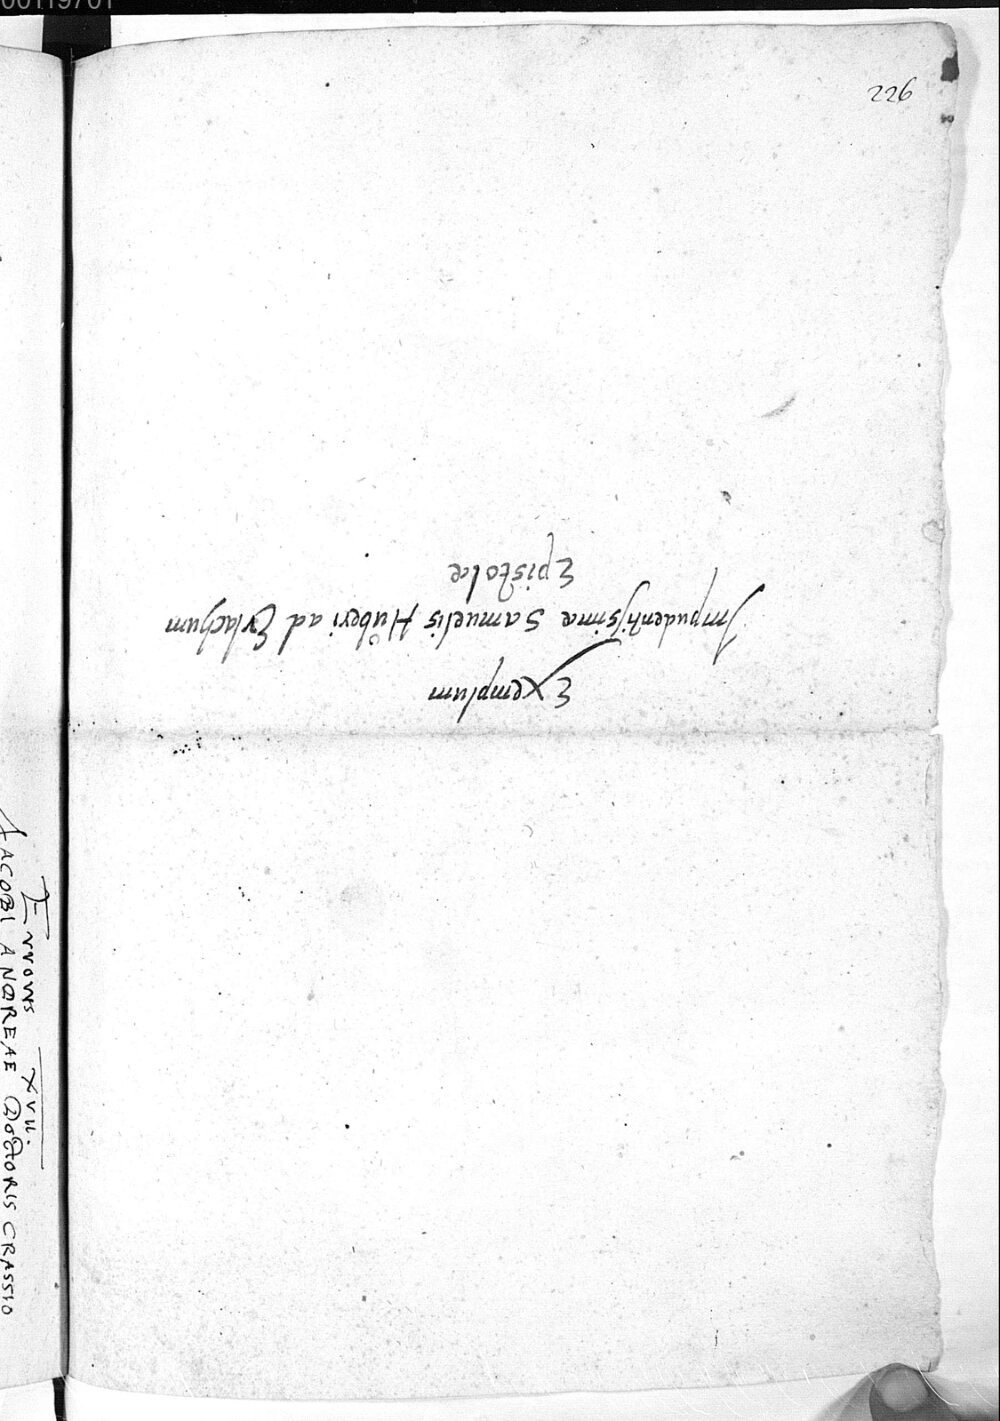 226
Exemplum
Impudentissimæ Samuelis Hůberi ad Erlachum
Epistolæ
Errores XVII.
IACOBI ANDREAE DOCTORIS CRASSIO